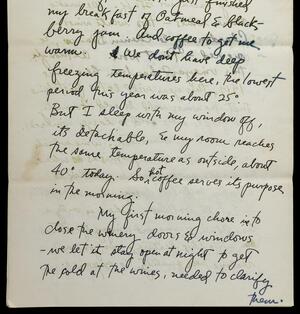 just finished
my breakfast of Oatmeal & Black-
berry jam. And coffee to get me
warm. We dont have deep
freezing temperatures here, the lowest
period this year was about 25°
But I sleep with my window off,
its detachable, & my room reaches
the same temperature as outside, about
40° today. So hot coffee serves its purpose
in the morning.
My first morning chore is to
close the winery doors & windows
- we let it stay open at night to get
the cold at the wines, needed to clarify
them.